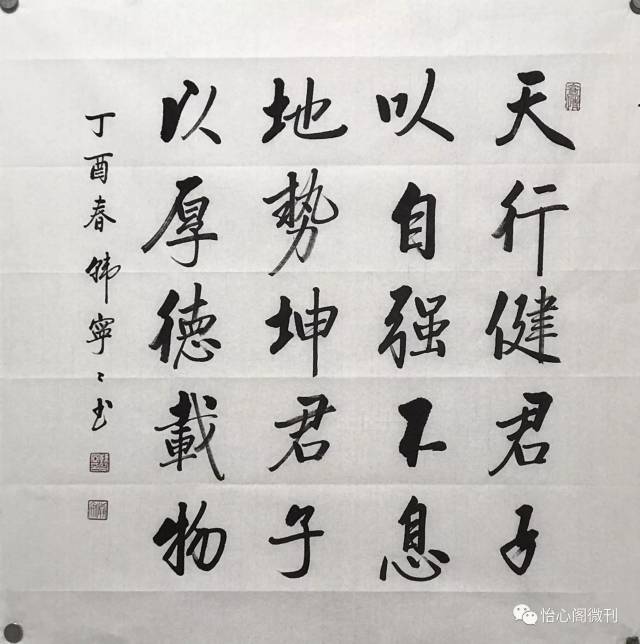 天行健君子
以自强不息
地勢坤君子
以厚德載物
丁酉春韩寧〻书
怡心阁微刊